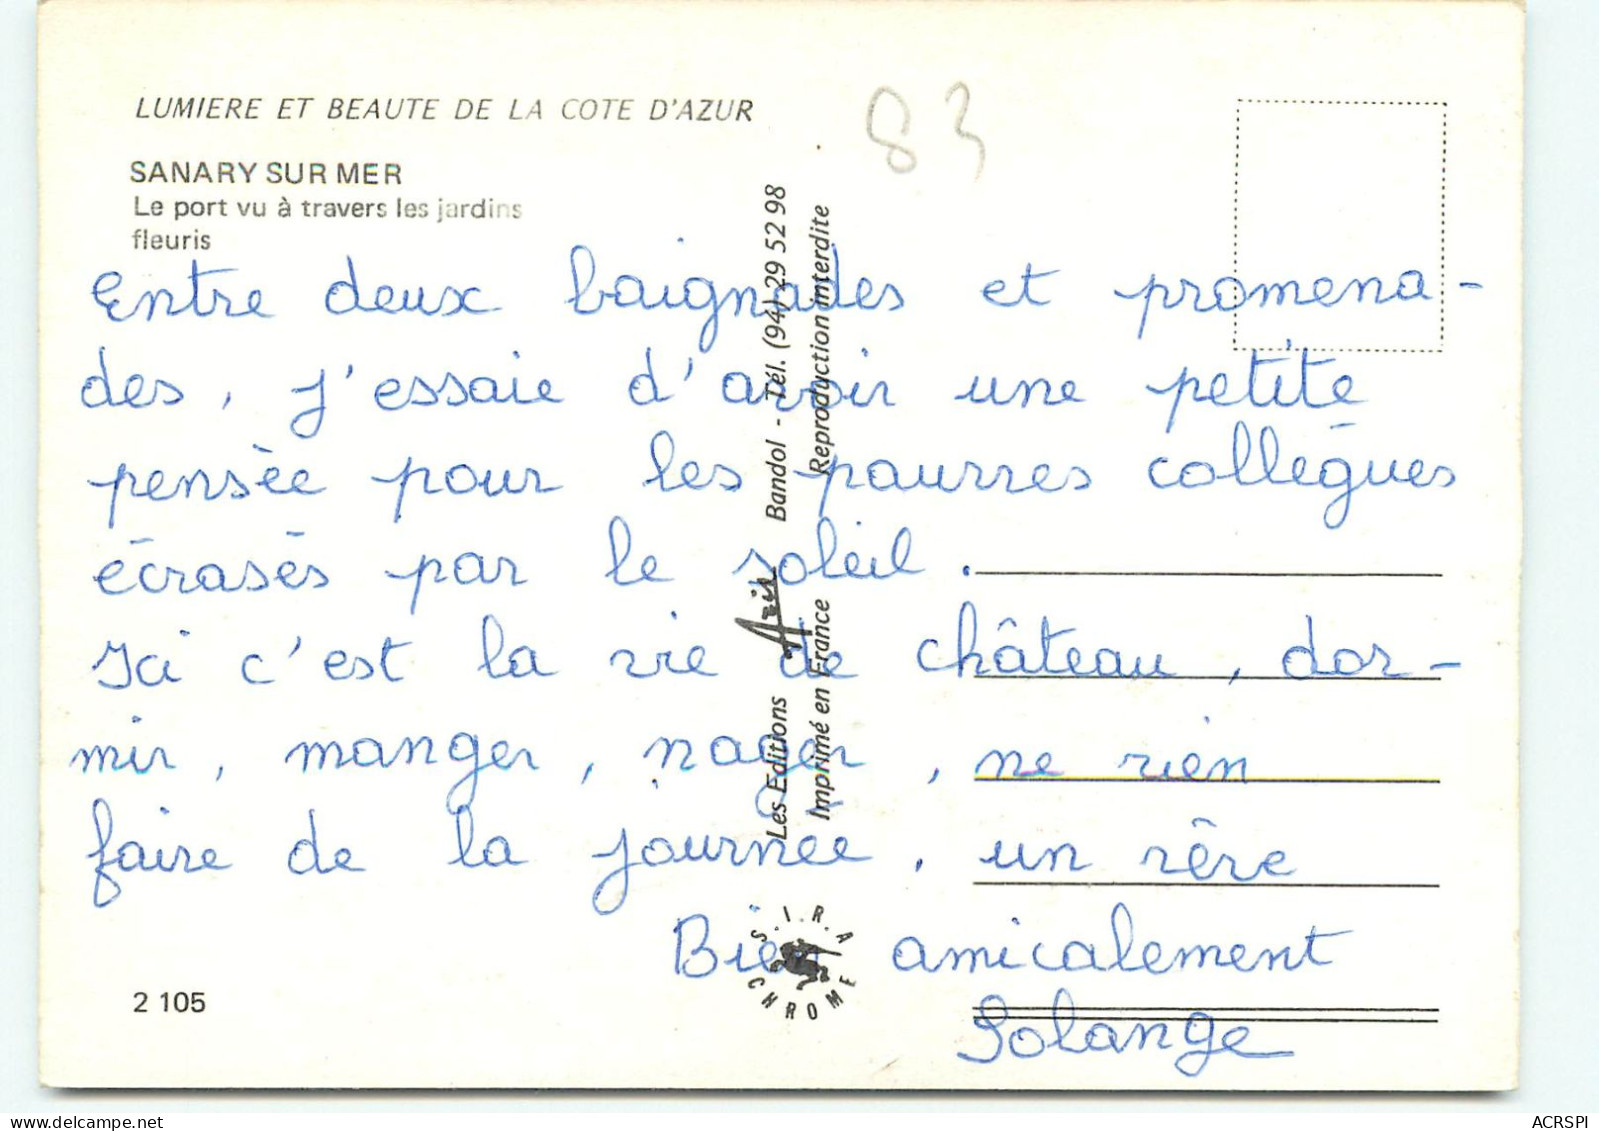 LUMIERE ET BEAUTE DE LA COTE D'AZUR
83
SANARY SUR MER
Le port vu à travers les jardins
fleuris
Entre deux baignades et promena-
des, j'essaie d'avoir une petite
pensée pour les pauvres collègues
écrasés par le soleil.
Ici c'est la vie de château, dor-
mir, manger, nager, ne rien
faire de la journée, un rêve
Bien amicalement
Solange
Les Editions Aris Bandol - Tél. (94) 29 52 98
Imprimé en France Reproduction interdite
S.I.R.A
CHROME
2 105
delcampe.net
ACRSPI